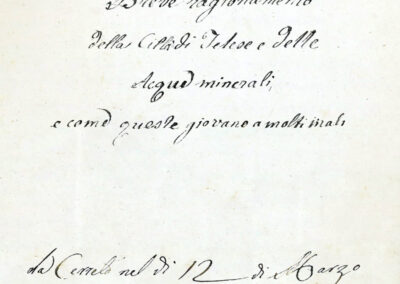 Breve ragionamento
della Città di Telese e delle
Acque minerali,
e come queste giovano a molti mali
da Cerreto nel dì 12 di Marzo